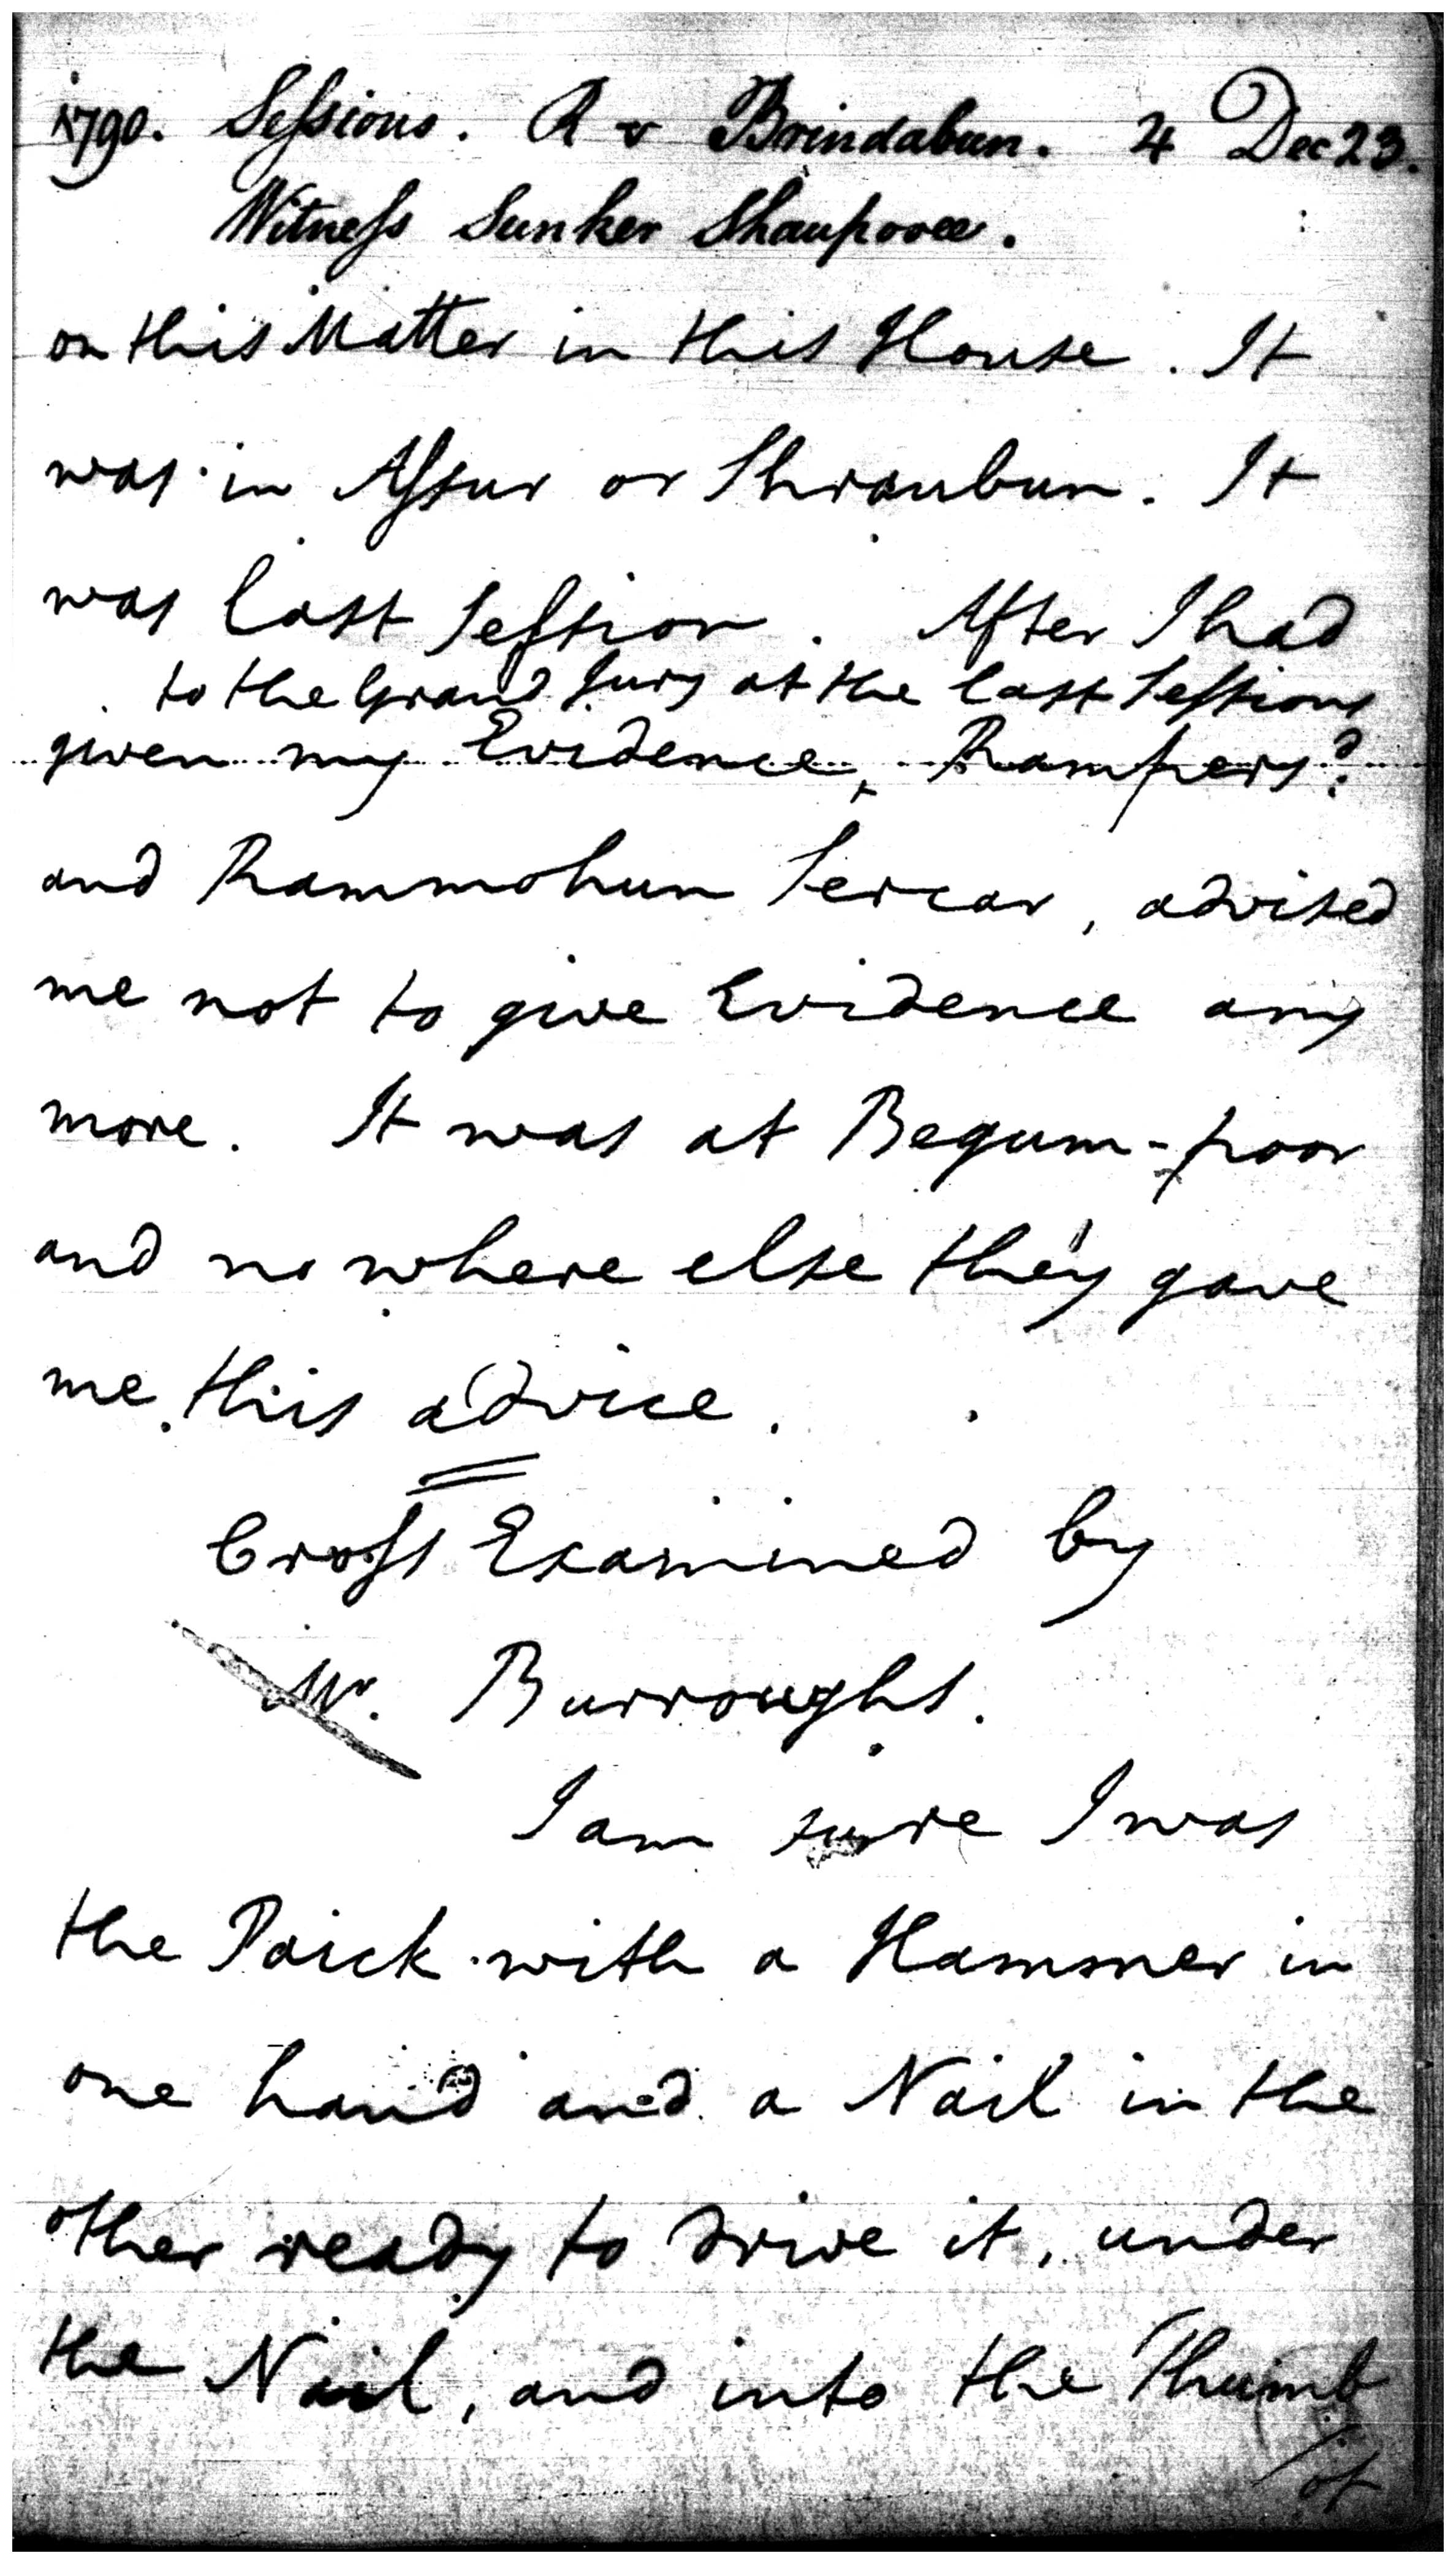 1790. Sessions. R v Brindabun. 4 Dec 23.
Witness Sunker Shaupooree.
on this Matter in this House. It
was in Assur or Shraubun. It
was last Session. After I had
to the Grand Jury at the last Sessions
given my Evidence, Rampers?
and Rammohun Sercar, advised
me not to give Evidence any
more. It was at Begum-poor
and no where else they gave
me this advice.
Cross Examined by
Mr. Burroughs.
I am sure I was
the Paick with a Hammer in
one hand and a Nail in the
other ready to drive it, under
the Nail, and into the Thumb
/of